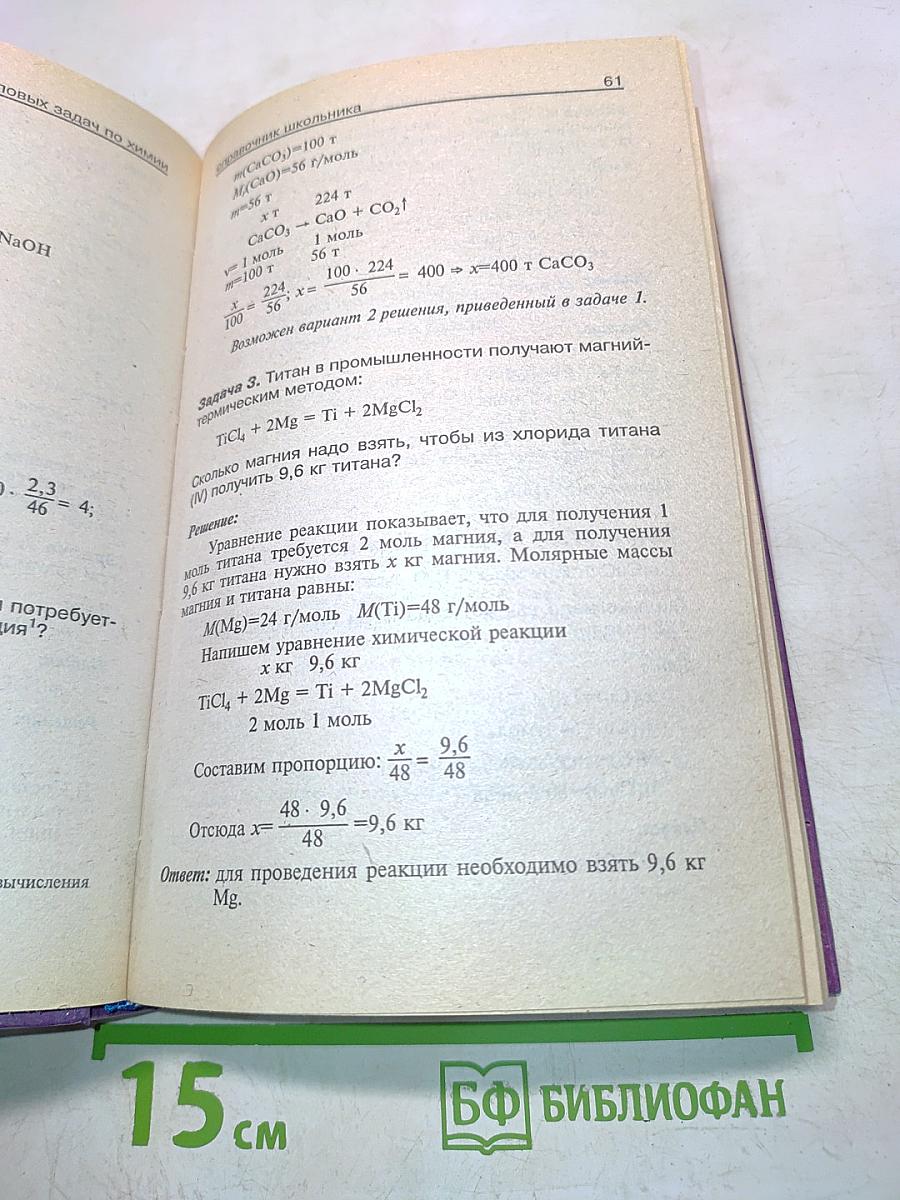 повых задач по химии
NaOH
· 2,3/46 = 4;
потребует-
ция¹?
вычисления
справочник школьника 61
m(CaCO₃)=100 т
Mᵣ(CaO)=56 г/моль
m=56 т
x т 224 т
CaCO₃ → CaO + CO₂↑
ν= 1 моль 1 моль
m=100 т 56 т
x/100 = 224/56; x= 100 · 224/56 = 400 ⇒ x=400 т CaCO₃
Возможен вариант 2 решения, приведенный в задаче 1.
Задача 3. Титан в промышленности получают магний-
термическим методом:
TiCl₄ + 2Mg = Ti + 2MgCl₂
Сколько магния надо взять, чтобы из хлорида титана
(IV) получить 9,6 кг титана?
Решение:
Уравнение реакции показывает, что для получения 1
моль титана требуется 2 моль магния, а для получения
9,6 кг титана нужно взять x кг магния. Молярные массы
магния и титана равны:
M(Mg)=24 г/моль M(Ti)=48 г/моль
Напишем уравнение химической реакции
x кг 9,6 кг
TiCl₄ + 2Mg = Ti + 2MgCl₂
2 моль 1 моль
Составим пропорцию: x/48 = 9,6/48
Отсюда x= 48 · 9,6/48 =9,6 кг
Ответ: для проведения реакции необходимо взять 9,6 кг
Mg.
15 см
БФ БИБЛИОФАН